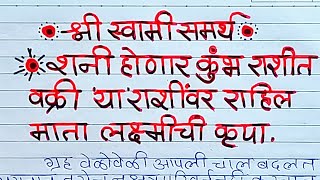 श्री स्वामी समर्थ
शनी होणार कुंभ राशीत
वक्री 'या' राशींवर राहिल
माता लक्ष्मीची कृपा.
ग्रह वेळोवेळी आपली चाल बदलत